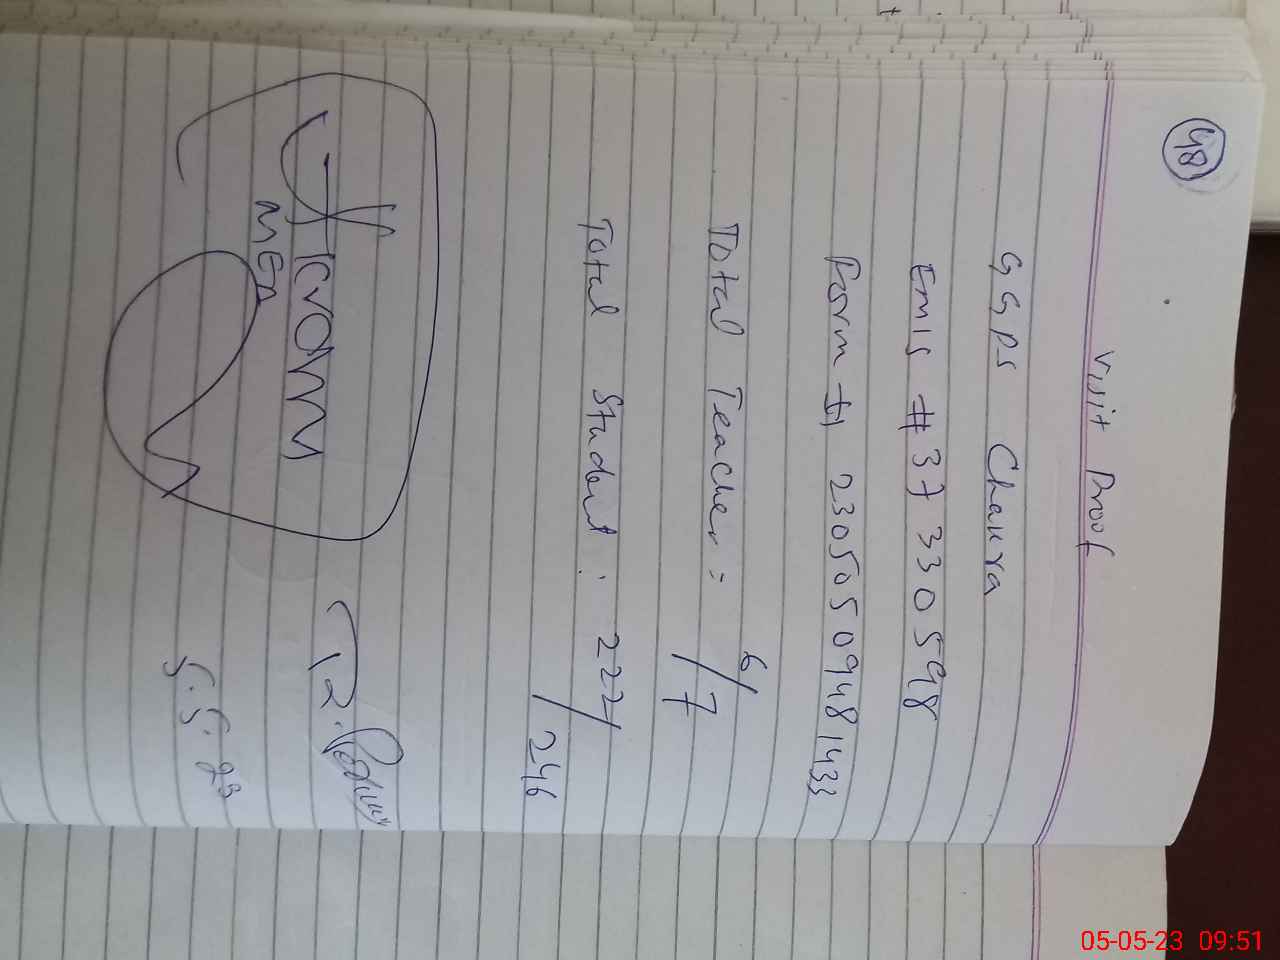 48
Visit Proof
GGPS Chakra
Emis # 37330598
Form # 23050509481433
Total Teacher: 6/7
Total Student: 222/246
Akram
MEA
5.5.23
05-05-23 09:51